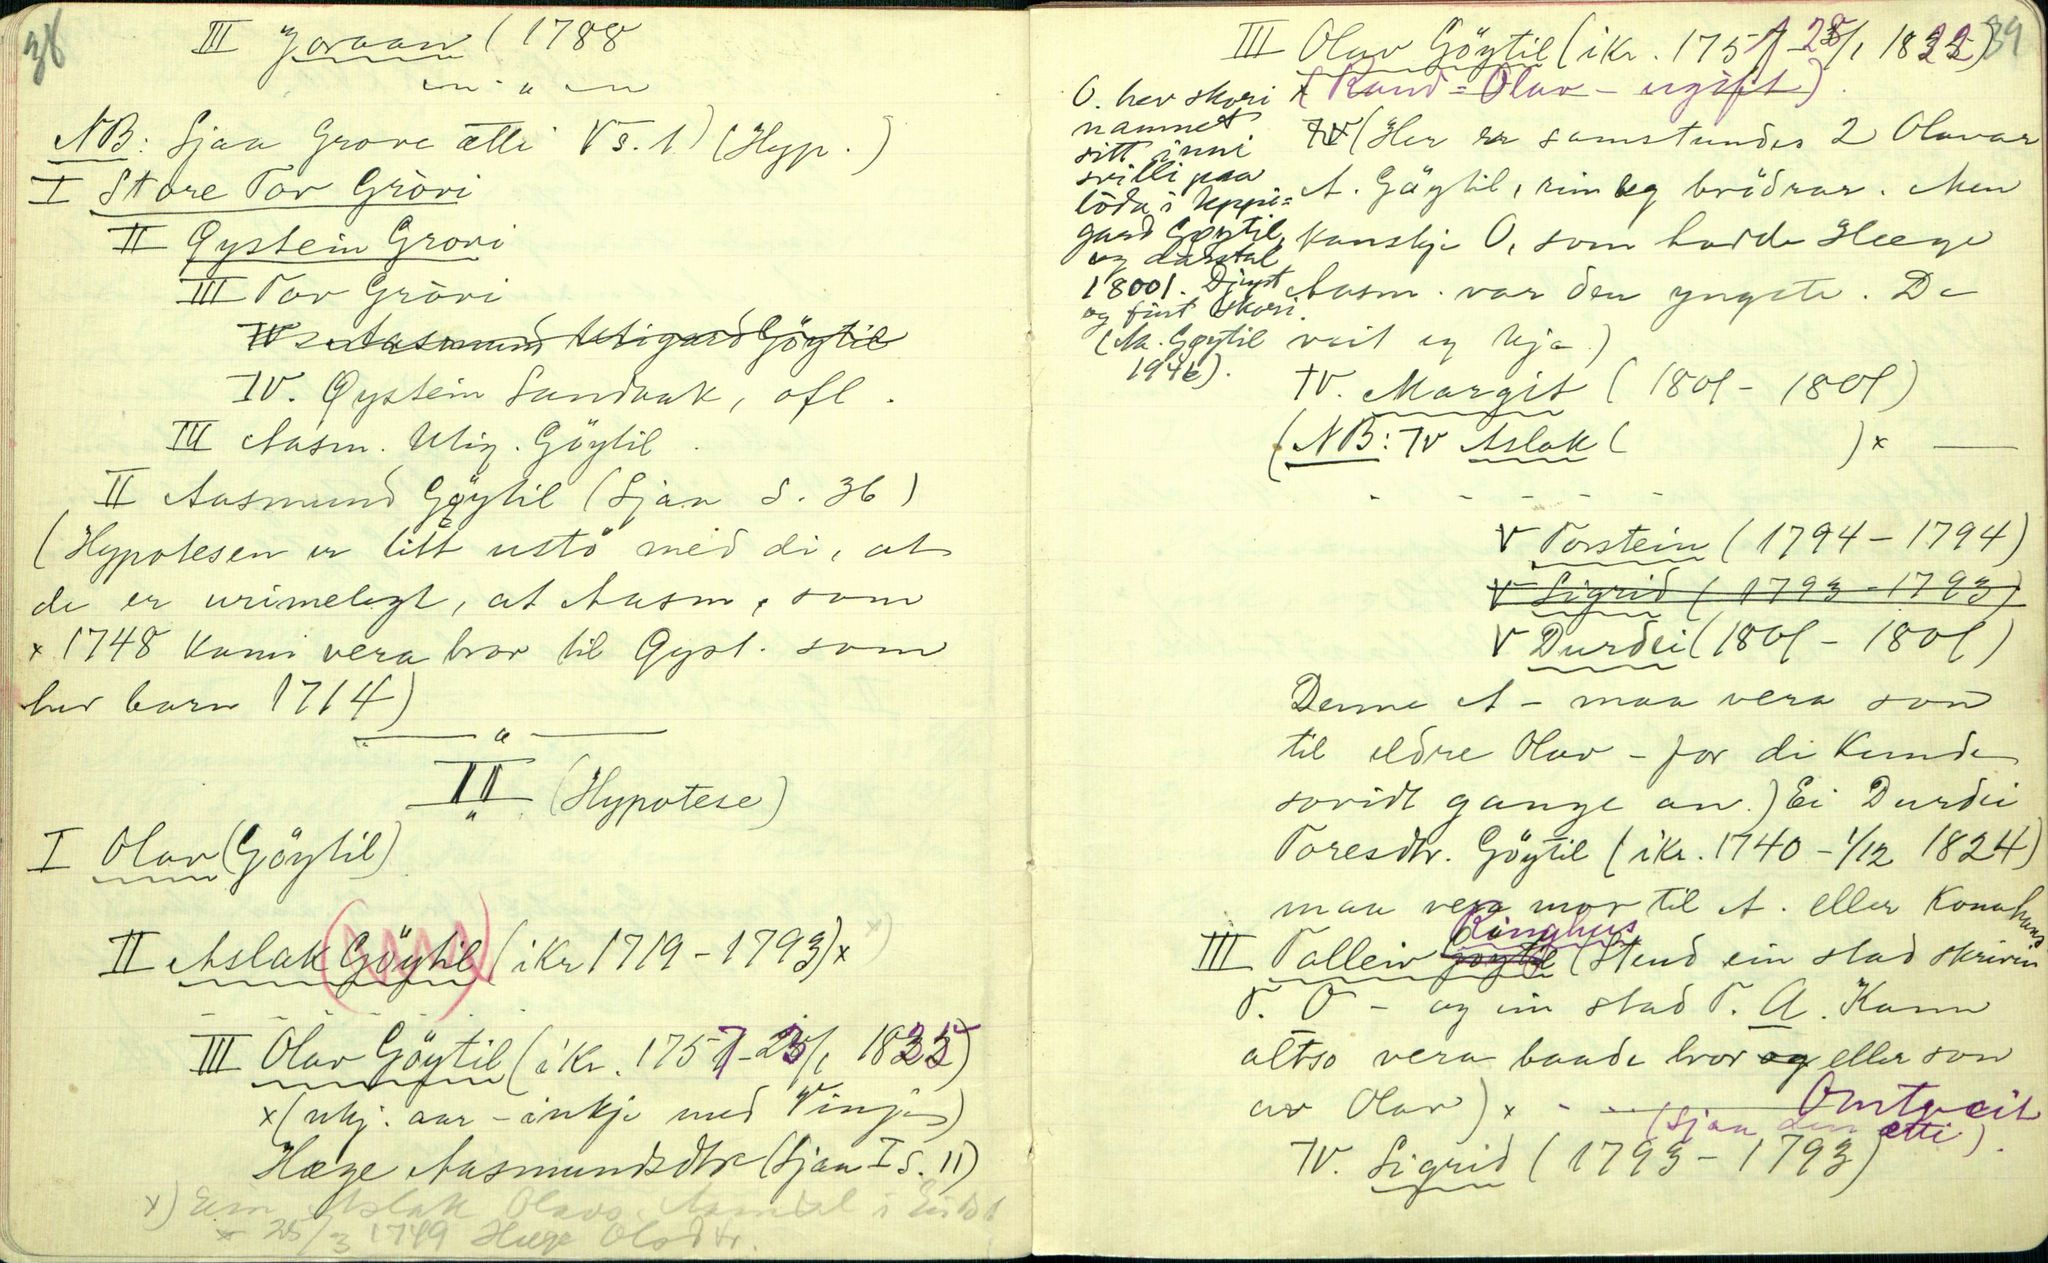 38
III Joraan (1788
— " —
NB: Sjaa Grove ætti V s. 1) (Hyp.)
I Store Tov Gròvi
II Øystein Grovi
III Tov Gròvi
IV Aasmund Utigard Göytil
IV. Øystein Sandaak, ofl.
III Aasm. Utig. Göytil.
II Aasmund Göytil (Sjaa S. 36)
(Hypotesen er litt ustö med di, at
de er urimelegt, at Aasm, som
x 1748 kann vera bror til Øyst. som
hev barn 1714)
— " —
II (Hypotese)
I Olav (Göytil)
II Aslak Göytil (ikr 1719 - 1793) x x)
- - - - - -
III Olav Göytil (ikr. 1757 - 23/1 1835)
x (ukj. aar - inkje med Vinje)
Hæge Aasmundsdtr (Sjaa I S. 11)
x) Ein Aslak Olavs. i
x 25/3 1749 Hæge Olsdtr.
39
III Olav Göytil (ikr. 1757 - 23/1 1835)
x (Rand-Olav - ugift)
O. hev skori
namnet
sitt inni
svilli paa
löda i Uppi-
gard Gøytil,
og årstal
1801. Djupt
og fint skori.
(Aa. Gøytil
1946).
IV (Her er samstundes 2 Olavar
A. Göytil, rimleg brödrar. Men
kanskje O, som hadde Hæge
Aasm. var den yngste. De
veit eg kje.)
IV. Margit (1801 - 1801)
(NB: IV Aslak ( ) x —
- - - - -
V Torstein (1794 - 1794)
V Sigrid (1793 - 1793)
V Durdei (1801 - 1801)
Denne A - maa vera son
til eldre Olav - for di kunde
sovidt gange an.) Ei Durdei
Toresdtr. Göytil (ikr. 1740 - 1/12 1824)
maa vera mor til A. eller kona hans
Ringhus
III Talleiv Göytil (Stend ein stad skriven
T. O - og ein stad T. A. Kann
altso vera baade bror og eller son
av Olav) x - - Omtveit
(Sjaa den ætti).
IV. Sigrid (1793 - 1793)